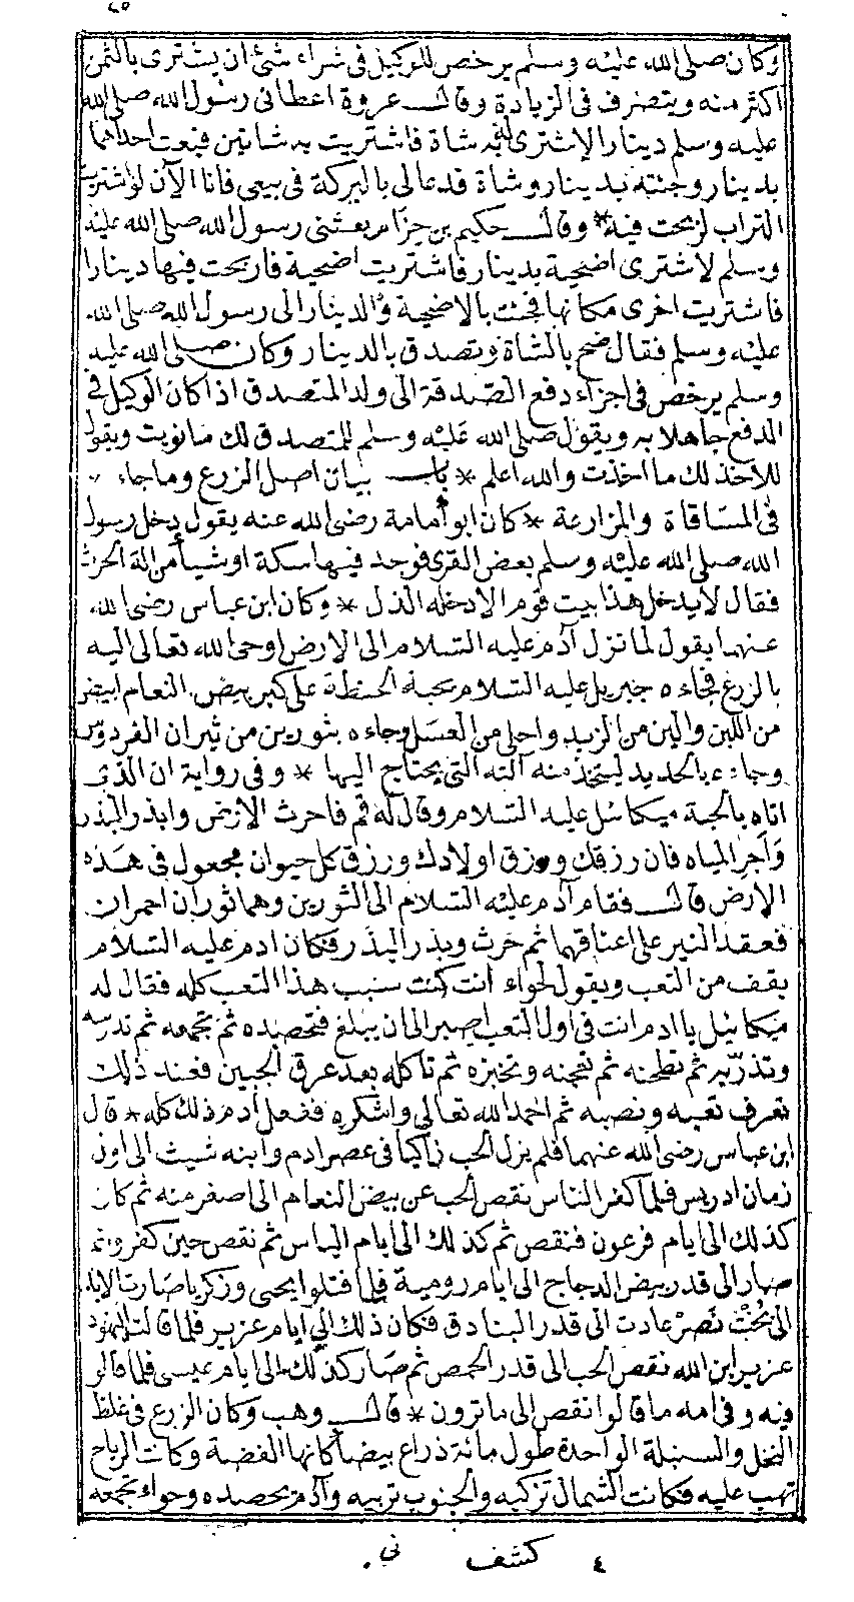 ٢٥
وكان صلى الله عليه وسلم يرخص للوكيل فى شراء شئ ان يشترى بالثمن
اكثر منه ويتصرف فى الزيادة وقال عروة اعطانى رسول الله صلى الله
عليه وسلم دينارا لاشترى له به شاة فاشتريت به شاتين فبعت احداهما
بدينار وجئته بدينار وشاة فدعا لى بالبركة فى بيعى فانا الآن لو اشتريت
التراب لربحت فيه * وقال حكيم بن حزام بعثنى رسول الله صلى الله عليه
وسلم لاشترى اضحية بدينار فاشتريت اضحية فاربحت فيها دينارا
فاشتريت اخرى مكانها فجئت بالاضحية والدينار الى رسول الله صلى الله
عليه وسلم فقال ضح بالشاة وتصدق بالدينار وكان صلى الله عليه
وسلم يرخص فى اجزاء دفع الصدقة الى ولد المتصدق اذا كان الوكيل فى
الدفع جاهلا به ويقول صلى الله عليه وسلم للمتصدق لك ما نويت ويقول
للآخذ لك ما اخذت والله اعلم * باب بيان اصل الزرع وما جاء
فى المساقاة والمزارعة * كان ابو أمامة رضى الله عنه يقول دخل رسول
الله صلى الله عليه وسلم بعض القرى فوجد فيها سكة او شيأ من آلة الحرث
فقال لا يدخل هذا بيت قوم الا دخله الذل * وكان ابن عباس رضى الله
عنهما يقول لما نزل آدم عليه السلام الى الارض اوحى الله تعالى اليه
بالزرع فجاءه جبريل عليه السلام بحبة الحنطة على كبر بيض النعام ابيض
من اللبن والين من الزبد واحلى من العسل وجاءه بثورين من ثيران الفردوس
وجاءه بالحديد ليتخذ منه آلته التى يحتاج اليها * وفى رواية ان الذى
اتاه بالحبة ميكائيل عليه السلام وقال له قم فاحرث الارض وابذر البذر
وأجر المياه فان رزقك ورزق اولادك ورزق كل حيوان مجعول فى هذه
الارض قال فقام آدم عليه السلام الى الثورين وهما ثوران احمران
فعقد النير على اعناقهما ثم حرث وبذر البذر فكان ادم عليه السلام
يقف من التعب ويقول لحواء انت كنت سبب هذا التعب كله فقال له
ميكائيل يا ادم انت فى اول التعب اصبر الى ان يبلغ فتحصده ثم تجمعه ثم تدرسه
وتذرّيه ثم تطحنه ثم تعجنه وتخبزه ثم تأكله بعد عرق الجبين فعند ذلك
تعرف تعبه ونصبه ثم احمد الله تعالى واشكره ففعل أدم ذلك كله * قال
ابن عباس رضى الله عنهما فلم يزل الحب زاكيا فى عصر ادم وابنه شيث الى اول
زمان ادريس فلما كفر الناس نقص الحب عن بيض النعام الى اصغر منه ثم كان
كذلك الى ايام فرعون فنقص ثم كذلك الى ايام الياس ثم نقص حين كفروا ثم
صار الى قدر بيض الدجاج الى ايام رومية فلما قتلوا يحيى وزكريا صارت الايام
الى بُخْتْ نَصرْ عادت الى قدر البنادق فكان ذلك الى ايام عزير فلما قالت اليهود
عزير ابن الله نقص الحب الى قدر الحمص ثم صار كذلك الى ايام عيسى فلما قالوا
فيه وفى امه ما قالوا نقص الى ما ترون * قال وهب وكان الزرع فى غلظ
النخل والسنبلة الواحدة طول مائة ذراع بيضا كانها الفضة وكانت الرياح
تهب عليه فكانت الشمال تزكيه والجنوب تربيه وآدم يحصده وحواء تجمعه
٤ كشف نى